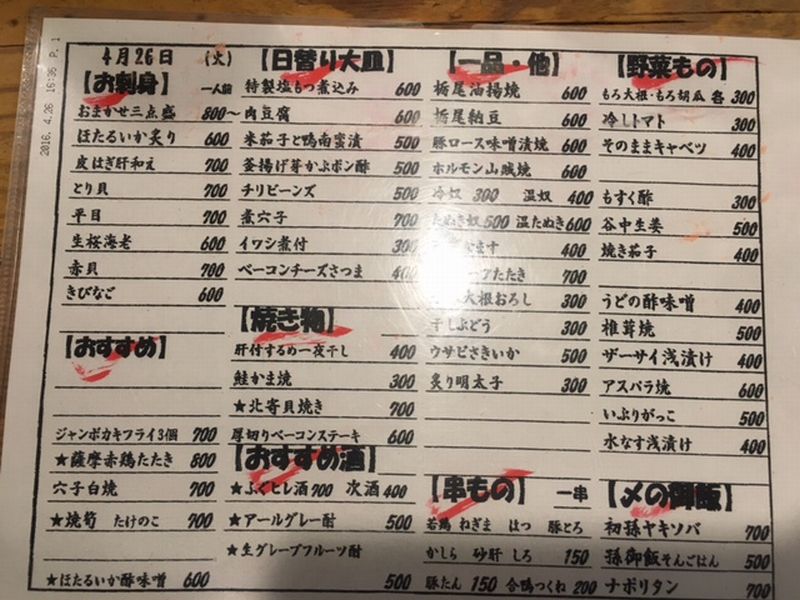 2016. 4.26 16:36 P. 1
4月26日 (火)
【お刺身】 一人前
おまかせ三点盛 800〜
ほたるいか炙り 600
皮はぎ肝和え 700
とり貝 700
平目 700
生桜海老 600
赤貝 700
きびなご 600
【おすすめ】
ジャンボカキフライ3個 700
★薩摩赤鶏たたき 800
穴子白焼 700
★焼筍 たけのこ 700
★ほたるいか酢味噌 600
【日替り大皿】
特製塩もつ煮込み 600
肉豆腐 600
米茄子と鴨南蛮漬 500
釜揚げ芽かぶポン酢 500
チリビーンズ 500
煮穴子 700
イワシ煮付 300
ベーコンチーズさつま 400
【焼き物】
肝付するめ一夜干し 400
鮭かま焼 300
★北寄貝焼き 700
厚切りベーコンステーキ 600
【おすすめ酒】
★ふぐヒレ酒 700 次酒 400
★アールグレー酎 500
★生グレープフルーツ酎
500
【一品・他】
栃尾油揚焼 600
栃尾納豆 600
豚ロース味噌漬焼 600
ホルモン山賊焼 600
冷奴 300 温奴 400
たぬき奴 500 温たぬき 600
ます 400
たたき 700
大根おろし 300
干しぶどう 300
ウサビさきいか 500
炙り明太子 300
【串もの】 一串
若鶏 ねぎま はつ 豚とろ
かしら 砂肝 しろ 150
豚たん 150 合鴨つくね 200
【野菜もの】
もろ大根・もろ胡瓜 各 300
冷しトマト 300
そのままキャベツ 400
もずく酢 300
谷中生姜 500
焼き茄子 400
うどの酢味噌 400
椎茸焼 500
ザーサイ浅漬け 400
アスパラ焼 600
いぶりがっこ 500
水なす浅漬け 400
【〆の御飯】
初孫ヤキソバ 700
孫御飯 そんごはん 500
ナポリタン 700